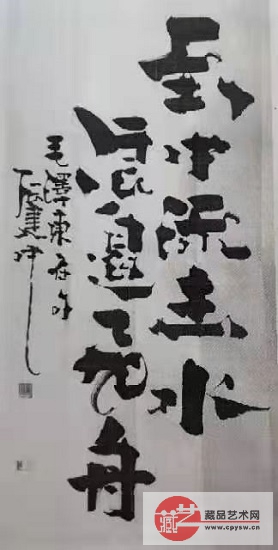 到中流击水
浪遏飞舟
毛澤東
藏艺
藏品艺术网
www.cpysw.cn